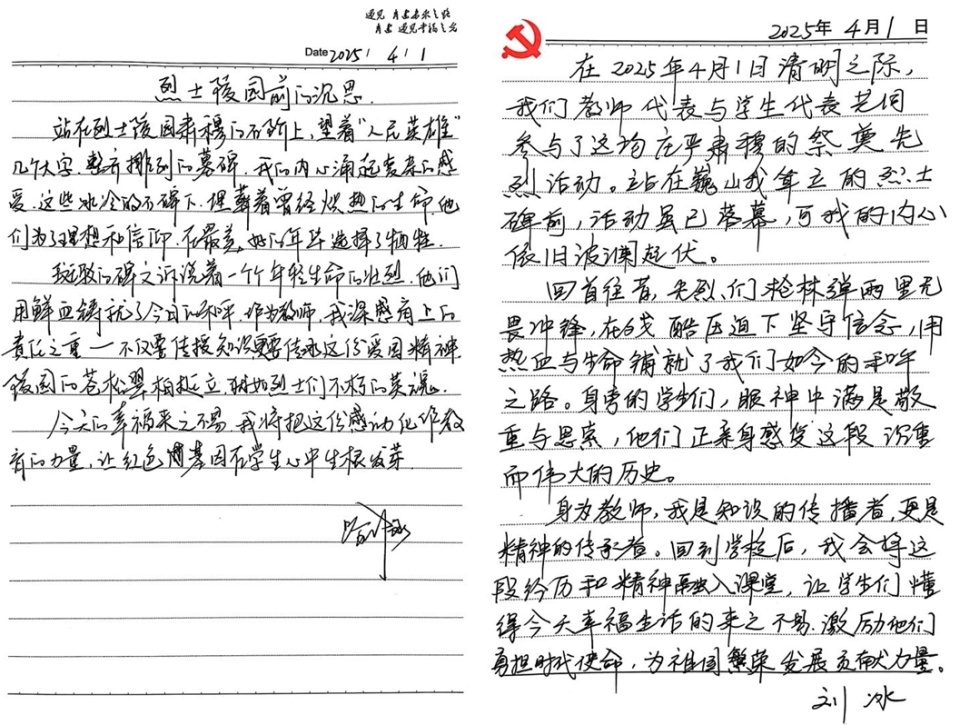 遇见 月与未来之路
月与 遇见幸福之光
Date 2025 / 4 / 1
烈士陵园前的沉思.
站在烈士陵园肃穆的石阶上,望着"人民英雄"
几个大字,整齐排列的墓碑,我的内心涌起复杂的感
受.这些冰冷的石碑下,埋藏着曾经炽热的生命,他
们为了理想和信仰,在最美好的年华选择了牺牲.
斑驳的碑文诉说着一个个年轻生命的壮烈.他们
用鲜血铸就了今日的和平.作为教师,我深感肩上的
责任之重——不仅要传授知识更要传承这份爱国精神.
陵园的苍松翠柏挺立,犹如烈士们不朽的英魂.
今天的幸福来之不易.我将把这份感动化作教
育的力量,让红色基因在学生心中生根发芽.
2025年 4月 1 日
在2025年4月1日清明之际,
我们教师代表与学生代表共同
参与了这场庄严肃穆的祭奠先
烈活动。站在巍山我耸立的烈士
碑前,活动虽已落幕,可我的内心
依旧波澜起伏。
回首往昔,先烈们枪林弹雨里无
畏冲锋,在残酷压迫下坚守信念,用
热血与生命铺就了我们如今的和平
之路。身旁的学生们,眼神中满是敬
重与思索,他们正亲身感受这段沉重
而伟大的历史。
身为教师,我是知识的传播者,更是
精神的传承者。回到学校后,我会将这
段经历和精神融入课堂,让学生们懂
得今天幸福生活的来之不易.激励他们
勇担时代使命,为祖国繁荣发展贡献力量。
刘冰